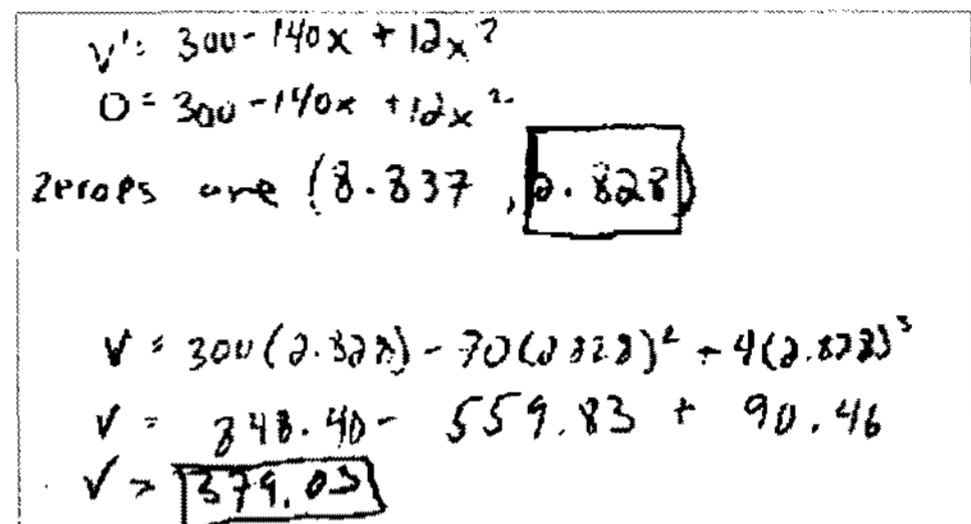 V' = 300 - 140x + 12x²
0 = 300 - 140x + 12x²
zeroes are (8.837, 2.828)
V = 300(2.828) - 70(2.828)² + 4(2.828)³
V = 848.40 - 559.83 + 90.46
V = 379.03